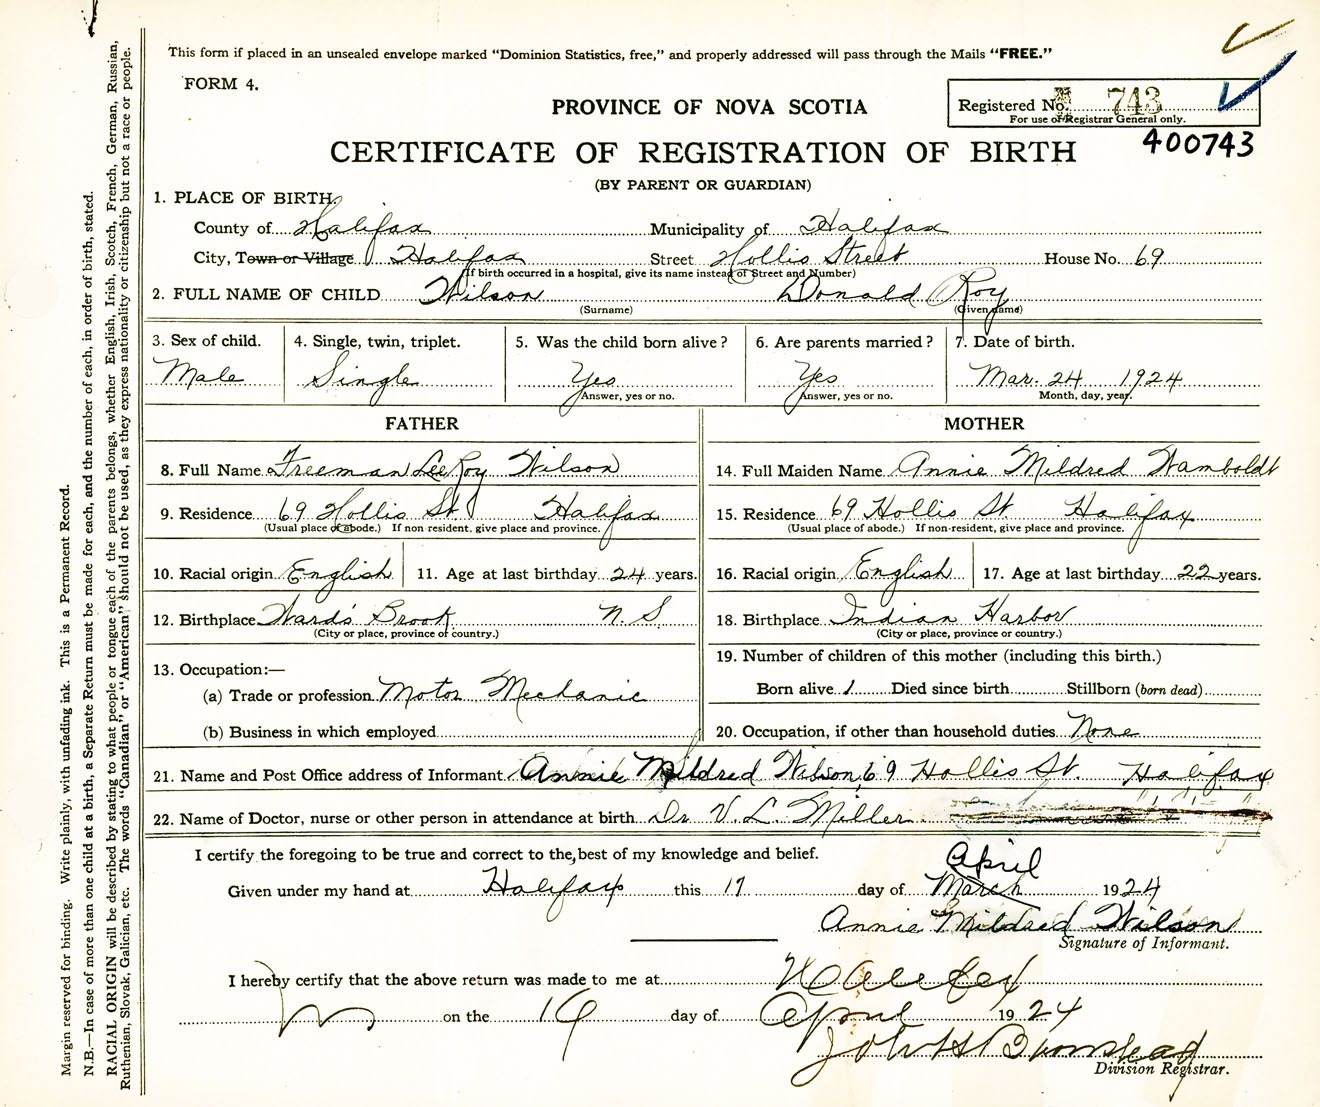 This form if placed in an unsealed envelope marked "Dominion Statistics, free," and properly addressed will pass through the Mails "FREE."
FORM 4.
Registered No. 743
For use of Registrar General only.
400743
PROVINCE OF NOVA SCOTIA
CERTIFICATE OF REGISTRATION OF BIRTH
(BY PARENT OR GUARDIAN)
1. PLACE OF BIRTH.
County of Halifax Municipality of Halifax
City, Town or Village Halifax Street Hollis Street House No. 69
(If birth occurred in a hospital, give its name instead of Street and Number)
2. FULL NAME OF CHILD Wilson Donald Roy
(Surname) (Given name)
3. Sex of child. 4. Single, twin, triplet. 5. Was the child born alive? 6. Are parents married? 7. Date of birth.
Male Single Yes Yes Mar. 24 1924
Answer, yes or no. Answer, yes or no. Month, day, year.
FATHER MOTHER
8. Full Name Freeman LeeRoy Wilson 14. Full Maiden Name Annie Mildred Wamboldt
9. Residence 69 Hollis St. Halifax 15. Residence 69 Hollis St Halifax
(Usual place of abode.) If non resident, give place and province. (Usual place of abode.) If non-resident, give place and province.
10. Racial origin English 11. Age at last birthday 24 years. 16. Racial origin English 17. Age at last birthday 22 years.
12. Birthplace Ward's Brook N. S. 18. Birthplace Indian Harbor
(City or place, province or country.) (City or place, province or country.)
13. Occupation:— 19. Number of children of this mother (including this birth.)
(a) Trade or profession Motor Mechanic Born alive 1 Died since birth Stillborn (born dead)
(b) Business in which employed 20. Occupation, if other than household duties None
21. Name and Post Office address of Informant Annie Mildred Wilson, 69 Hollis St. Halifax
22. Name of Doctor, nurse or other person in attendance at birth Dr V. L. Miller
I certify the foregoing to be true and correct to the best of my knowledge and belief.
April
Given under my hand at Halifax this 17 day of March 1924
Annie Mildred Wilson
Signature of Informant.
I hereby certify that the above return was made to me at Halifax
on the day of April 1924
Division Registrar.
Margin reserved for binding. Write plainly, with unfading ink. This is a Permanent Record.
N.B.—In case of more than one child at a birth, a Separate Return must be made for each, and the number of each, in order of birth, stated.
RACIAL ORIGIN will be described by stating to what people or tongue each of the parents belongs, whether English, Irish, Scotch, French, German, Russian,
Ruthenian, Slovak, Galician, etc. The words "Canadian" or "American" should not be used, as they express nationality or citizenship but not a race or people.